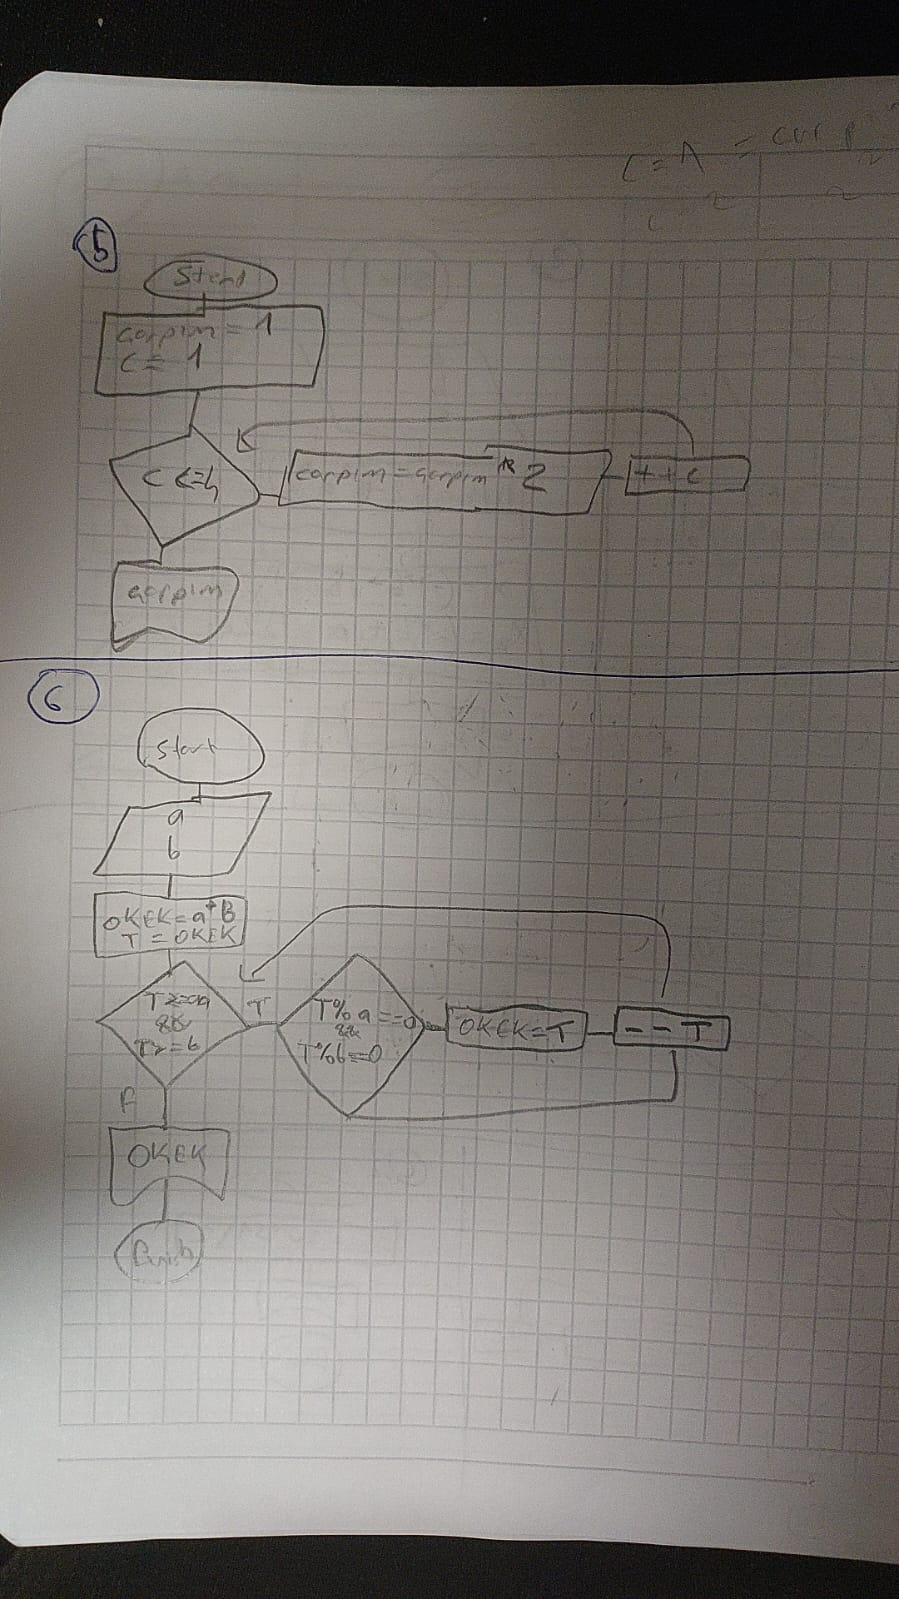 C = A = carp
2 2
5
Start
carpim = 1
C = 1
C <= 4
carpim = carpim * 2
++c
carpim
6
Start
a
b
OKEK = a*B
T = OKEK
T >= a
&&
T >= b
T
T%a == 0
&&
T%b == 0
OKEK = T
--T
F
OKEK
finish